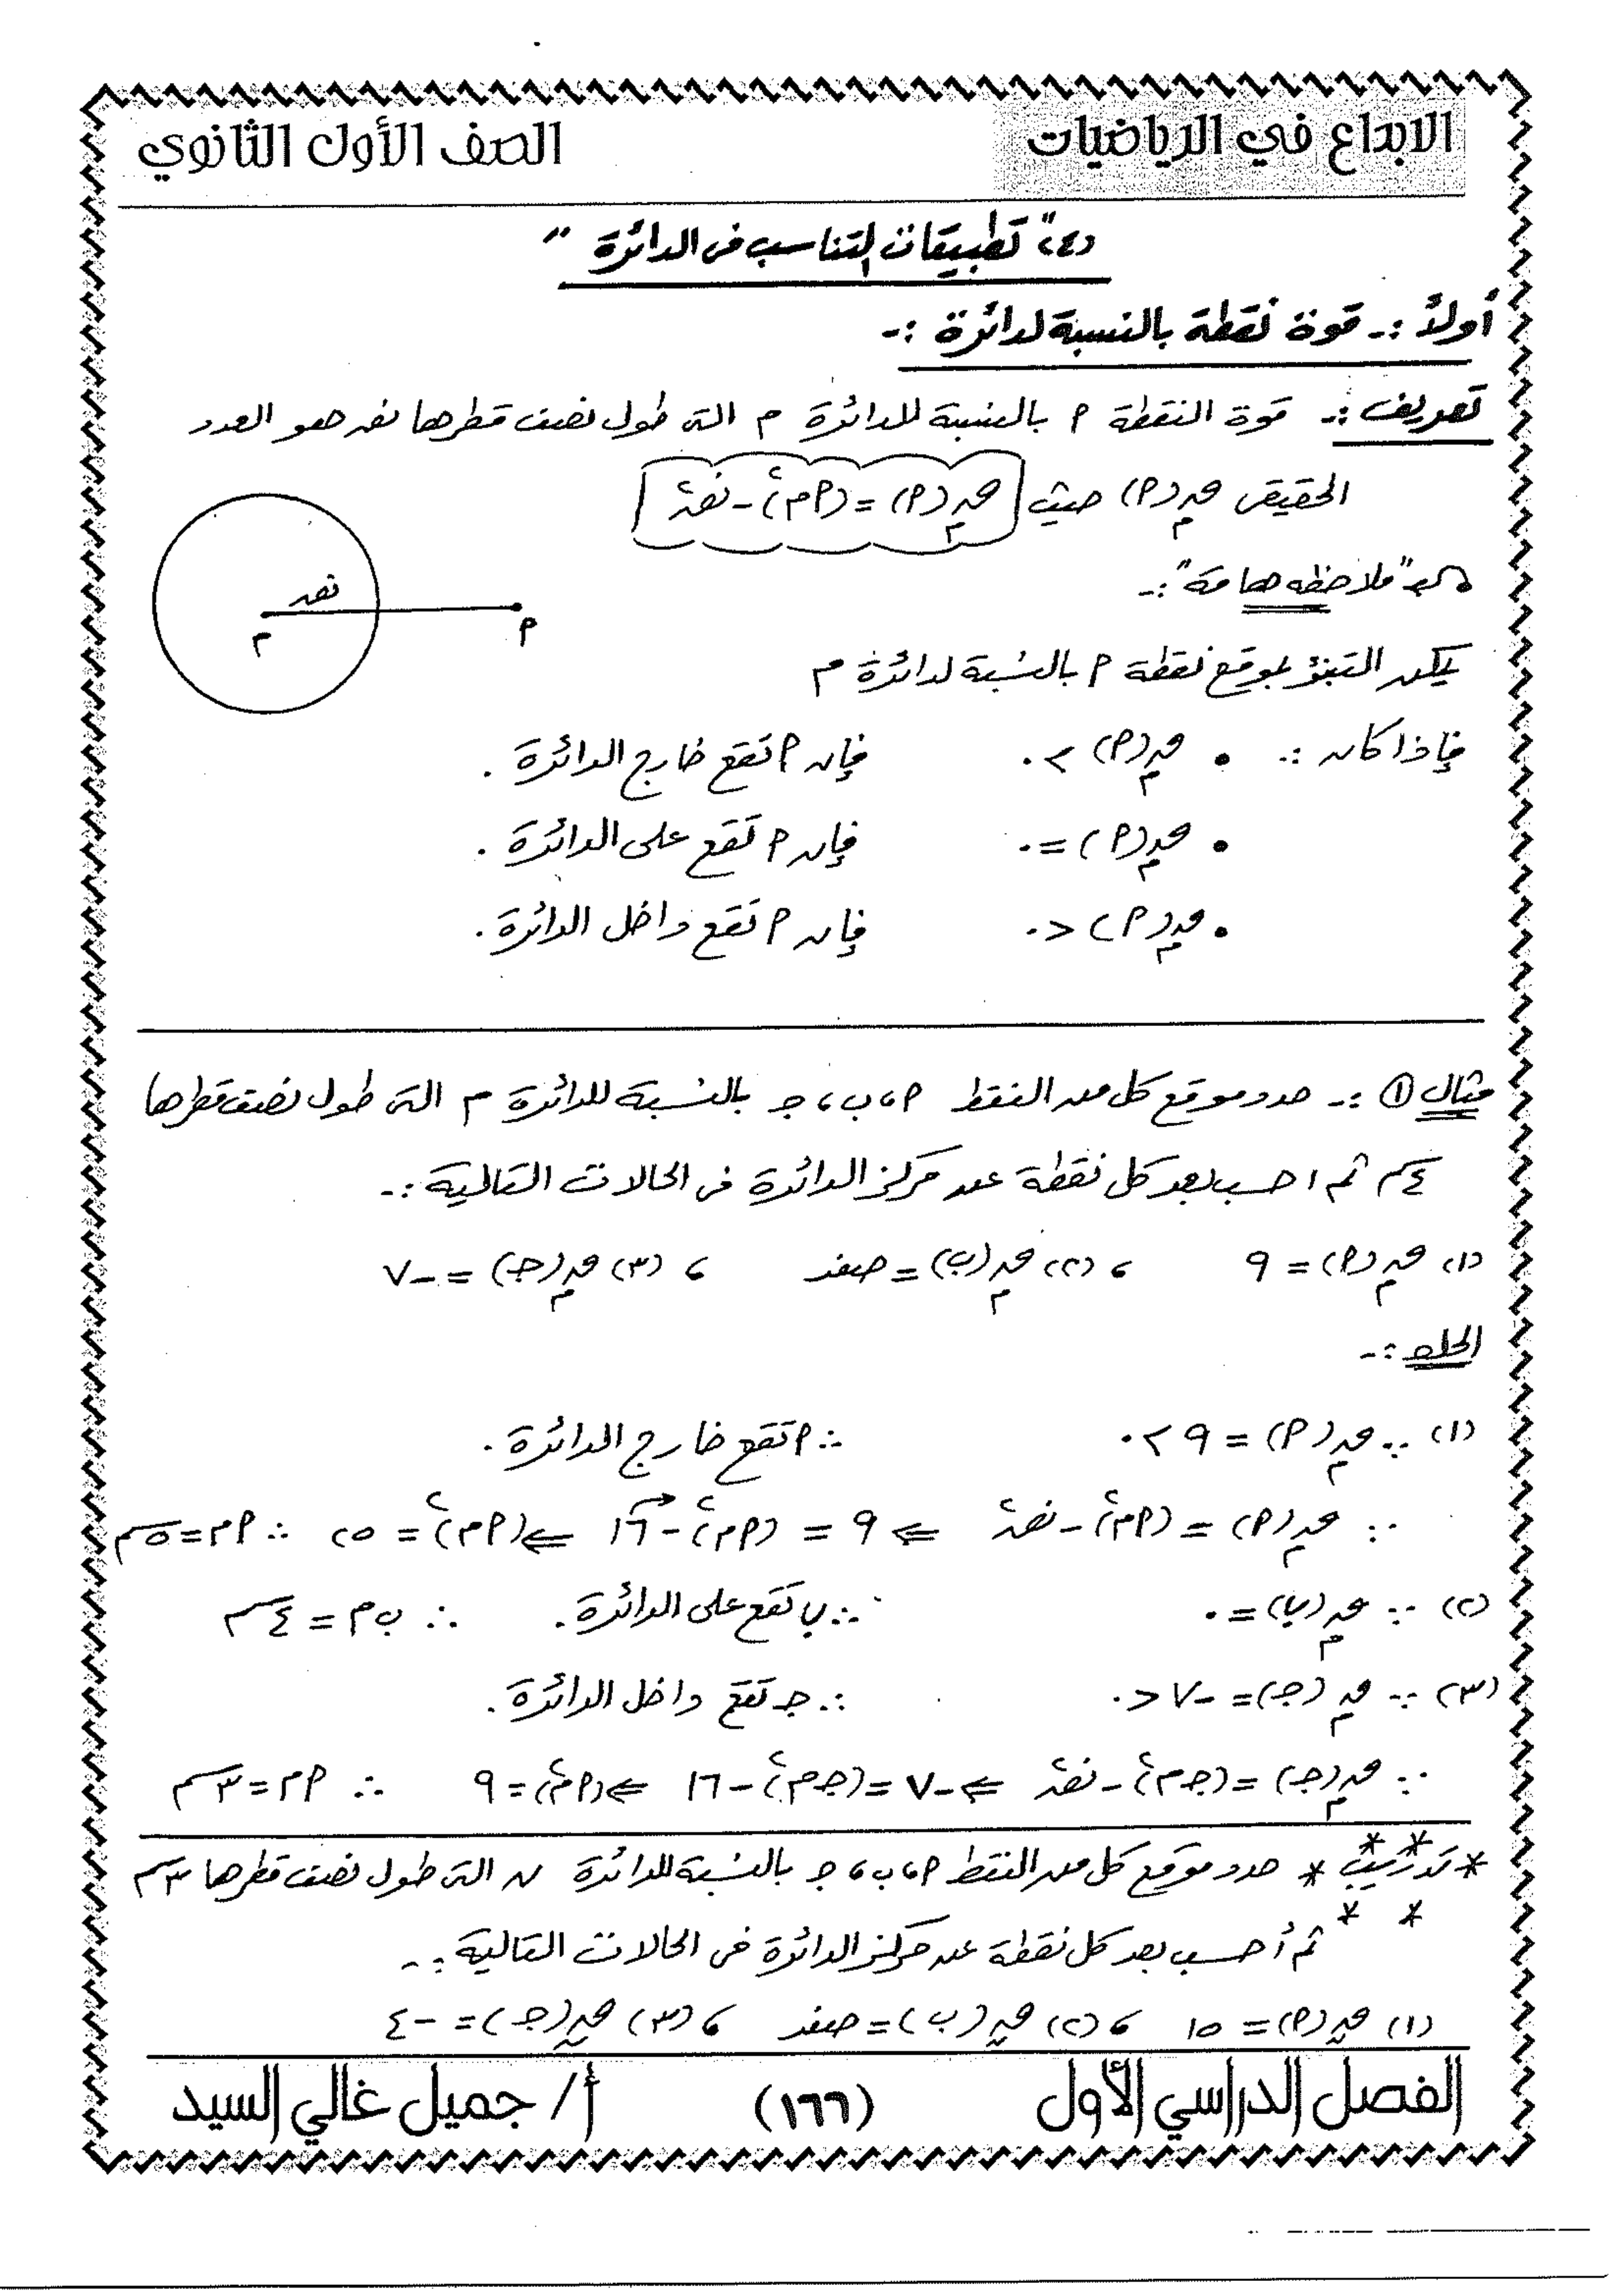 الابداع في الرياضيات
الصف الأول الثانوي
(٤) "تطبيقات التناسب فى الدائرة"
أولاً :- قوة نقطة بالنسبة لدائرة :-
تعريف :- قوة النقطة P بالنسبة للدائرة م التى طول نصف قطرها نق هو العدد
الحقيقى قم(P) حيث قم(P) = (Pم)٢ - نق٢
نق
م
P
"ملاحظه هامة" :-
يمكن التنبؤ بموقع نقطة P بالنسبة لدائرة م
فإذا كان :- • قم(P) > ٠ فإن P تقع خارج الدائرة .
• قم(P) = ٠ فإن P تقع على الدائرة .
• قم(P) < ٠ فإن P تقع داخل الدائرة .
مثال (١) :- حدد موقع كل من النقط P ، ب ، جـ بالنسبة للدائرة م التى طول نصف قطرها
٤سم ثم احسب بعد كل نقطة عن مركز الدائرة فى الحالات التالية :-
(١) قم(P) = ٩ ، (٢) قم(ب) = صفر ، (٣) قم(جـ) = -٧
الحل :-
(١) ∵ قم(P) = ٩ > ٠ ∴ P تقع خارج الدائرة .
∵ قم(P) = (Pم)٢ - نق٢ ⇐ ٩ = (Pم)٢ - ١٦ ⇐ (Pم)٢ = ٢٥ ∴ Pم = ٥سم
(٢) ∵ قم(ب) = ٠ ∴ ب تقع على الدائرة . ∴ ب م = ٤سم
(٣) ∵ قم(جـ) = -٧ < ٠ ∴ جـ تقع داخل الدائرة .
∵ قم(جـ) = (جـم)٢ - نق٢ ⇐ -٧ = (جـم)٢ - ١٦ ⇐ (Pم)٢ = ٩ ∴ Pم = ٣سم
* تدريب * حدد موقع كل من النقط P ، ب ، جـ بالنسبة للدائرة ن التى طول نصف قطرها ٣سم
ثم أحسب بعد كل نقطة عن مركز الدائرة فى الحالات التالية :-
(١) قن(P) = ١٥ ، (٢) قن(ب) = صفر ، (٣) قن(جـ) = -٤
الفصل الدراسي الأول
(١٦٦)
أ/ جميل غالي السيد